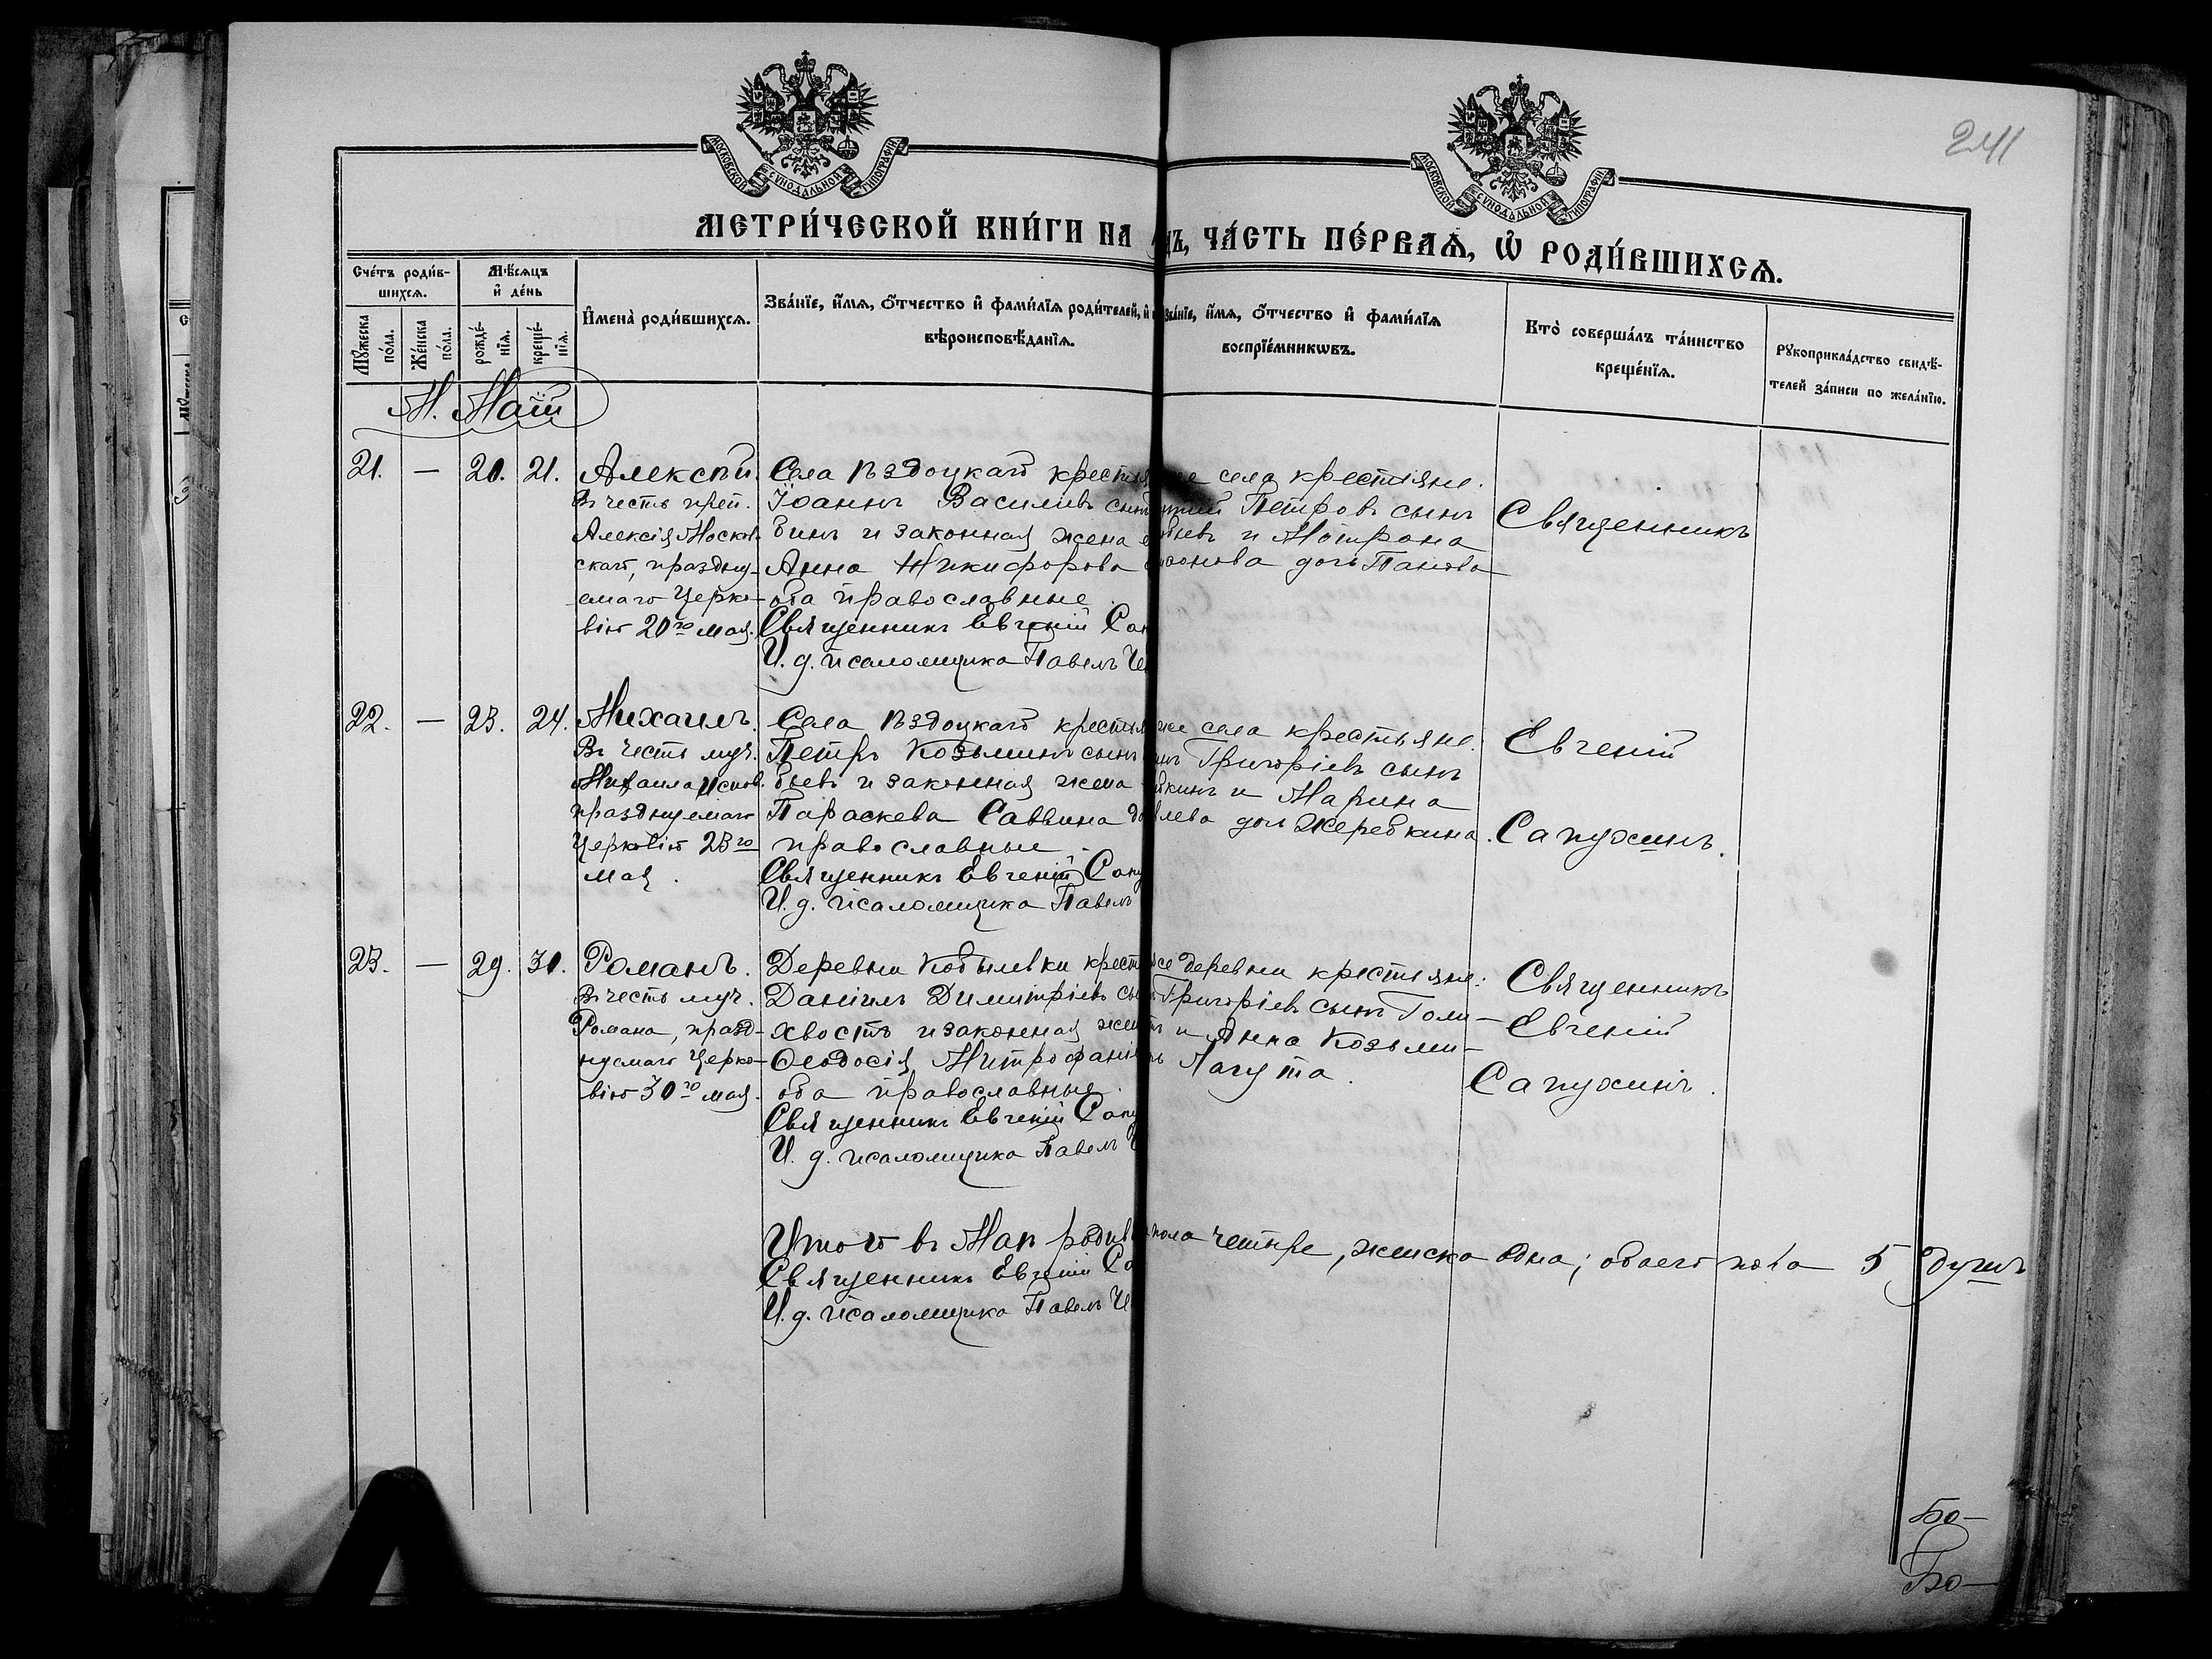 241
МОСКОВСКОЙ СѴНОДАЛЬНОЙ ТИПОГРАФІИ
МОСКОВСКОЙ СѴНОДАЛЬНОЙ ТИПОГРАФІИ
МЕТРИ́ЧЕСКОЙ КНИ́ГИ НА ДЪ, ЧА́СТЬ ПЕ́РВАѦ, Ѡ҆ РОДИ́ВШИХСѦ.
Сче́тъ роди́в-
шихсѧ.
Мꙋ́жеска
по́ла.
Же́нска
по́ла.
Мѣ́сѧцъ
и҆ де́нь
рожде́-
нїѧ.
креще́-
нїѧ.
И҆мена̀ роди́вшихсѧ.
Зва́нїе, и҆́мѧ, ѻ҆́тчество и҆ фами́лїѧ роди́телей, и҆
вѣроисповѣ́данїѧ.
Зва́нїе, и҆́мѧ, ѻ҆́тчество и҆ фами́лїѧ
воспрїе́мникѡвъ.
Кто̀ соверша́лъ та́инство
креще́нїѧ.
Рꙋкоприкла́дство свидѣ́-
телей за́писи по жела́нїю.
М. Маій
21. — 20. 21.
Алексѣй.
Въ честь преп.
Алексія Москов-
скаго, праздну-
емаго Церко-
вію 20го мая.
Села Ѣздоцкаго крестья
Іоаннъ Васильевъ сынъ
бинъ и законная жена е
Анна Никифорова
оба православные.
Священникъ Евгеній Сап
И. д. псаломщика Павелъ
же села крестьяне.
Петровъ сынъ
и Матрона
дочь Панова
Священникъ
22. — 23. 24.
Михаилъ.
Въ честь муч.
Михаила Испов.
празднуемаго
Церковію 23го
мая.
Села Ѣздоцкаго крестья
Петръ Козьминъ сынъ
бьевъ и законная жена
Параскева Саввина до
православные.
Священникъ Евгеній Сапу
И. д. псаломщика Павелъ
же села крестьяне.
Григоріевъ сынъ
и Марина
дочь Жеребкина.
Евгеній
Сапухинъ.
23. — 29. 30.
Романъ.
Въ честь муч.
Романа, празд-
нуемаго Церко-
вію 30го мая.
Деревни Кобылевки крест
Даніилъ Димитріевъ сы
хвостъ и законная жен
Ѳеодосія Митрофані
оба православные.
Священникъ Евгеній Сапу
И. д. псаломщика Павелъ
же деревни крестьяне:
Григоріевъ сынъ Голи-
и Анна Козьми-
Лагута.
Священникъ
Евгеній
Сапухинъ.
Итого въ Маѣ родив пола четыре, женска одна; обоего пола 5 душъ
Священникъ Евгеній Са
И. д. псаломщика Павелъ
Бо-
Бо-